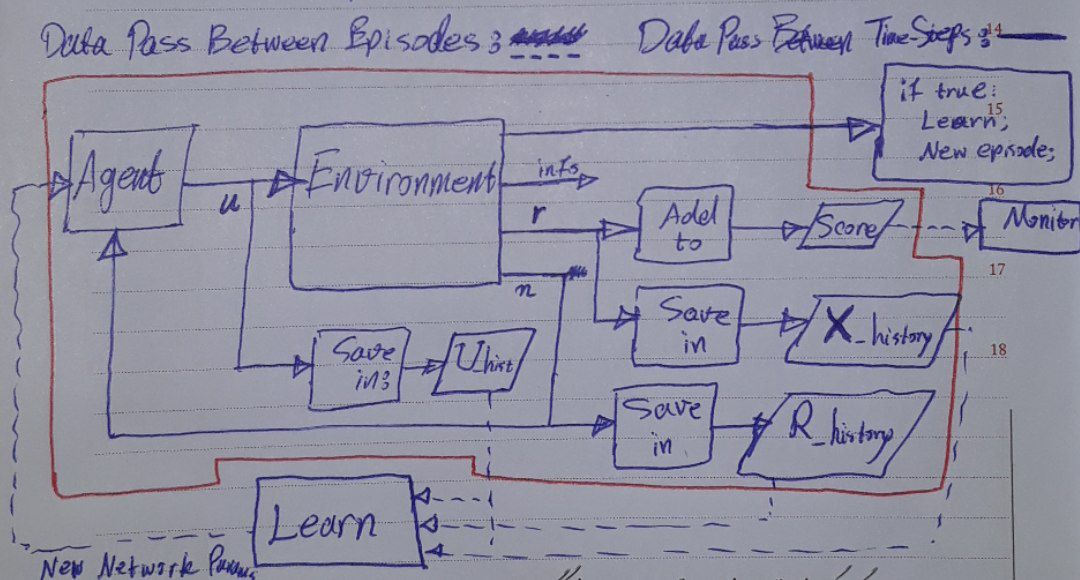 Data Pass Between Episodes :
Data Pass Between Time Steps :
14
if true:
15
Learn;
New episode;
Agent
u
Environment
info
r
n
Add
to
Score
16
Monitor
17
Save
in
X_history
18
Save
in:
U_hist
Save
in
R_history
Learn
New Network Params